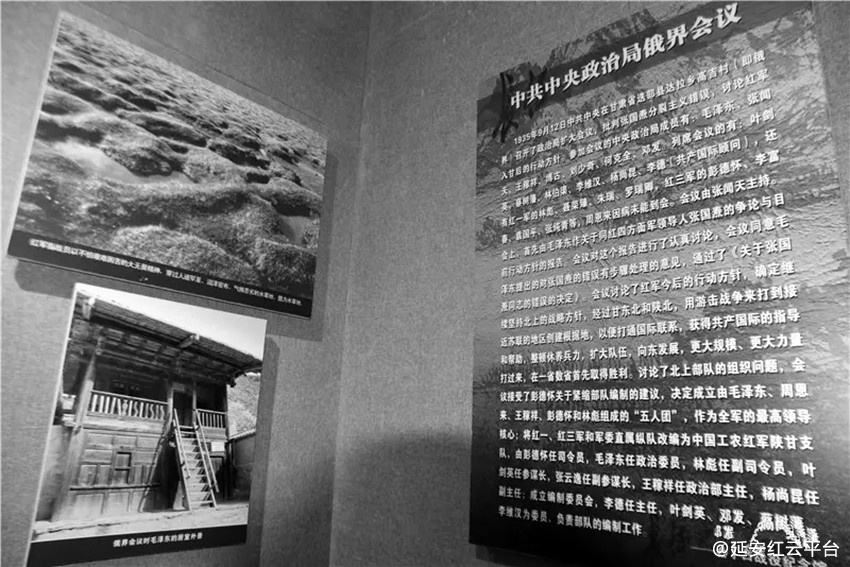 红军指战员以不怕艰难困苦的大无畏精神,穿过人迹罕至、沼泽密布、气候恶劣的水草地。图为水草地。
俄界会议时毛泽东的居室外景
中共中央政治局俄界会议
1935年9月12日中共中央在甘肃省迭部县达拉乡高吉村(即俄
界)召开了政治局扩大会议,批判张国焘分裂主义错误,讨论红军
入甘后的行动方针。参加会议的中央政治局成员有:毛泽东、张闻
天、王稼祥、博古、刘少奇、何克全、邓发,列席会议的有:叶剑
英、蔡树藩、林伯渠、李维汉、杨尚昆、李德(共产国际顾问),还
有红一军的林彪、聂荣臻、朱瑞、罗瑞卿,红三军的彭德怀、李富
春、袁国平、张纯青等,周恩来因病未能到会。会议由张闻天主持。
会上,首先由毛泽东作关于同红四方面军领导人张国焘的争论与目
前行动方针的报告,会议对这个报告进行了认真讨论,会议同意毛
泽东提出的对张国焘的错误有步骤处理的意见,通过了《关于张国
焘同志的错误的决定》。会议讨论了红军今后的行动方针,确定继
续坚持北上的战略方针,经过甘东北和陕北,用游击战争来打到接
近苏联的地区创建根据地,以便打通国际联系,获得共产国际的指导
和帮助,整顿休养兵力,扩大队伍,向东发展,更大规模、更大力量
打过来,在一省数省首先取得胜利。讨论了北上部队的组织问题,会
议接受了彭德怀关于紧缩部队编制的建议,决定成立由毛泽东、周恩
来、王稼祥、彭德怀和林彪组成的“五人团”,作为全军的最高领导
核心;将红一、红三军和军委直属纵队改编为中国工农红军陕甘支
队,由彭德怀任司令员,毛泽东任政治委员,林彪任副司令员,叶
剑英任参谋长,张云逸任副参谋长,王稼祥任政治部主任,杨尚昆任
副主任;成立编制委员会,李德任主任,叶剑英、邓发、蔡树藩、
李维汉为委员,负责部队的编制工作。
@延安红云平台